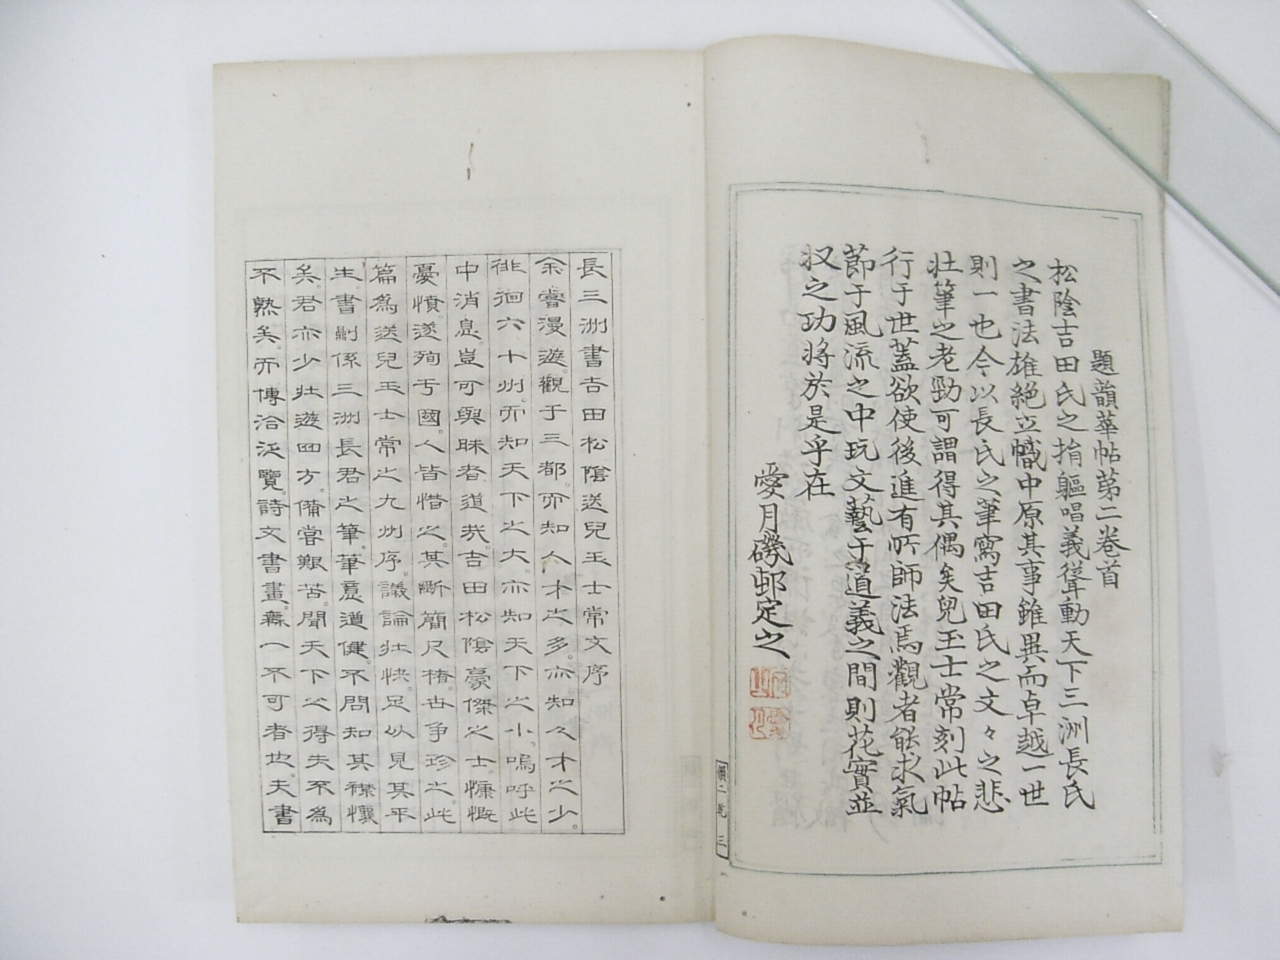 題韻華帖第二卷首
松陰吉田氏之捐軀唱義聳動天下三洲長氏
之書法雄絶立幟中原其事雖異而卓越一世
則一也今以長氏之筆寫吉田氏之文々之悲
壮筆之老勁可謂得其偶矣兒玉士常刻此帖
行于世蓋欲使後進有所師法焉觀者能求氣
節于風流之中玩文藝于道義之間則花實並
収之功將於是乎在
愛月磯邨定之
韻二 三
長三洲書吉田松陰送兒玉士常文序
余嘗漫遊。觀于三都。而知人才之多。而知人才之少。
徘徊六十州。而知天下之大。而知天下之小。嗚呼此
中消息。豈可與眛者道哉。吉田松陰豪傑之士。慷慨
憂憤。遂殉于國。人皆惜之。其斷簡尺楮。世争珍之。此
篇為送兒玉士常之九州序。議論壮快。足以見其平
生。書則係三洲長君之筆。筆意遒健。不問知其襟懷
矣。君亦少壮遊四方。備嘗艱苦。閲天下之得失不為
不熟矣。而傳洽泛覽。詩文書畫。無一不可者也。夫書